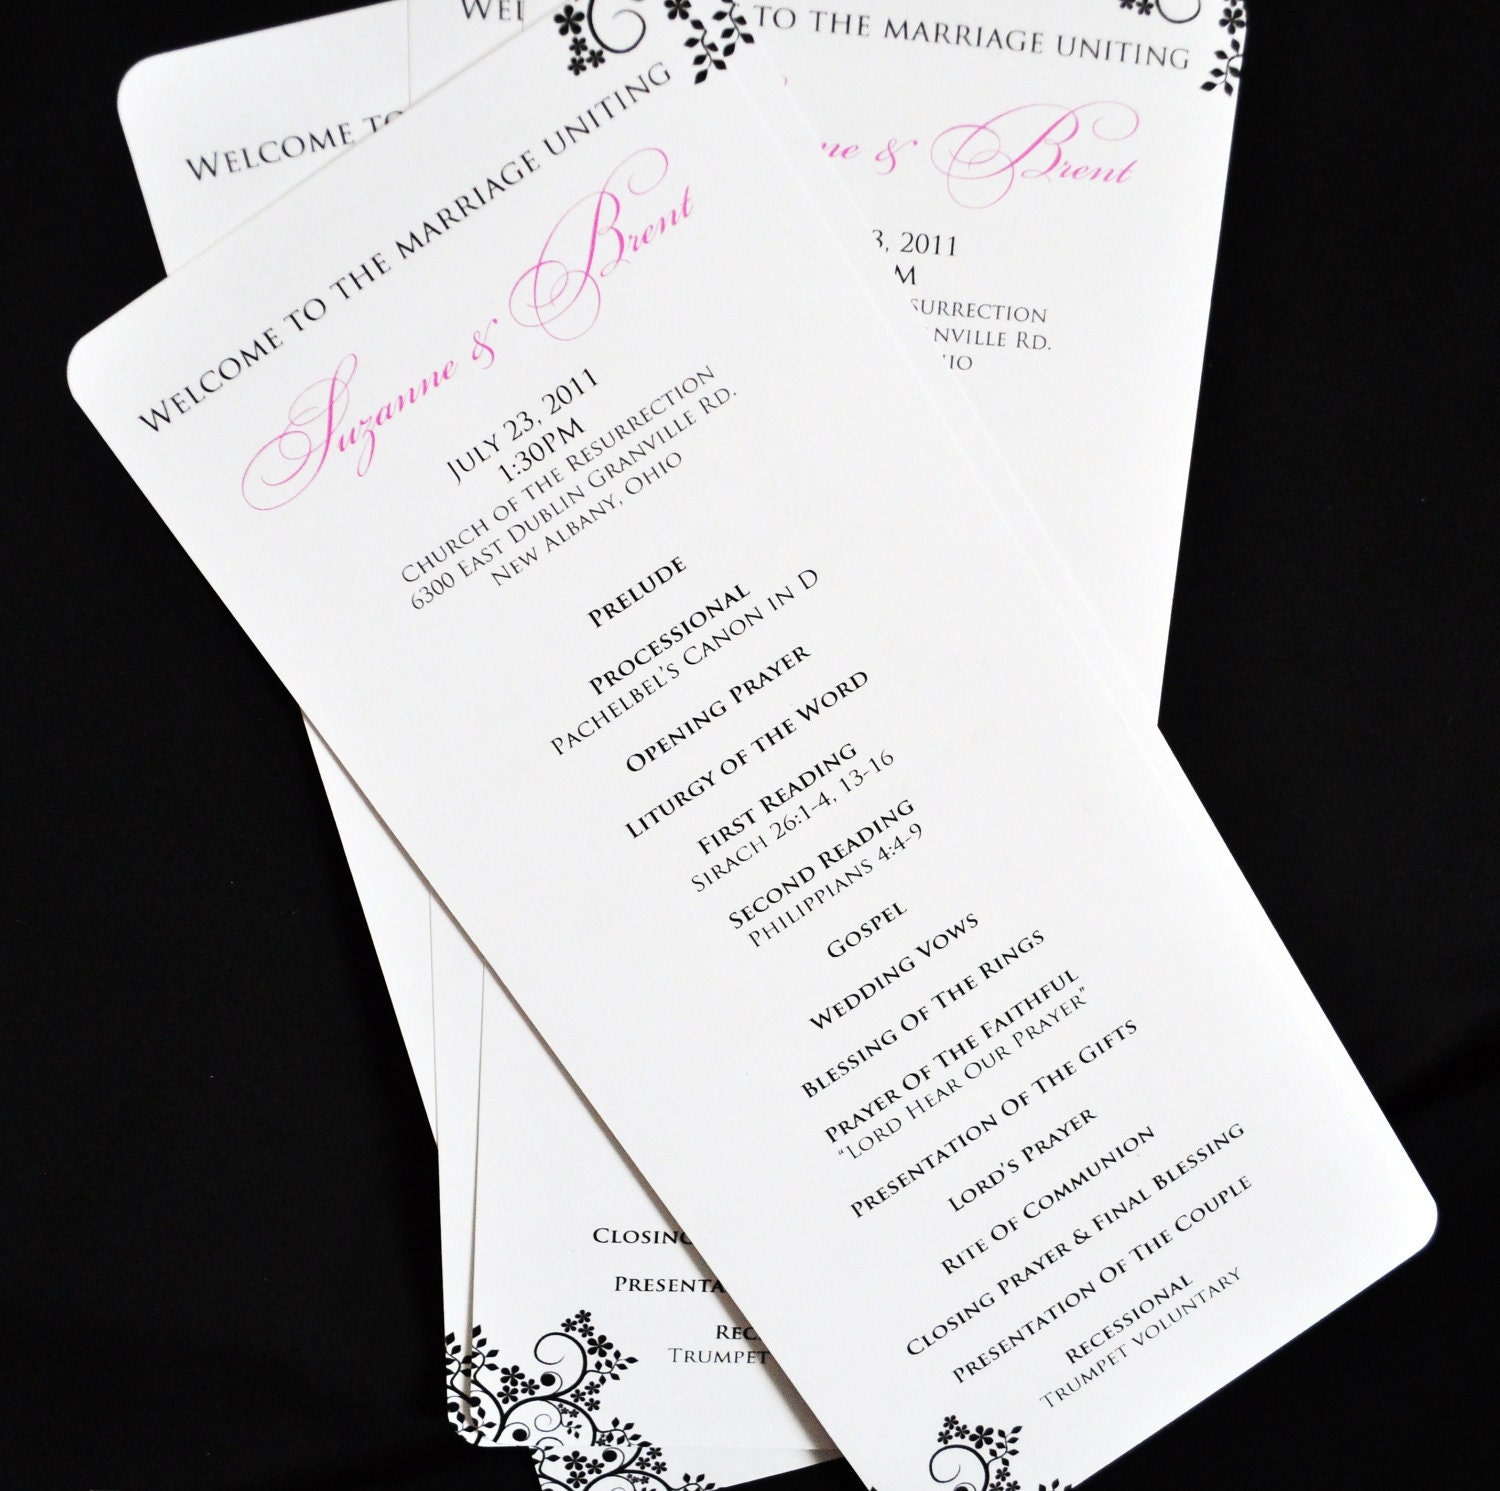 Welcome to the marriage uniting
Suzanne & Brent
July 23, 2011
1:30PM
Church of the Resurrection
6300 East Dublin Granville Rd.
New Albany, Ohio
Prelude
Processional
Pachelbel's Canon in D
Opening Prayer
Liturgy of the Word
First Reading
Sirach 26:1-4, 13-16
Second Reading
Philippians 4:4-9
Gospel
Wedding Vows
Blessing Of The Rings
Prayer Of The Faithful
"Lord Hear Our Prayer"
Presentation Of The Gifts
Lord's Prayer
Rite Of Communion
Closing Prayer & Final Blessing
Presentation Of The Couple
Recessional
Trumpet Voluntary
Welcome to
to the marriage uniting
& Brent
3, 2011
Rd.
Trumpet